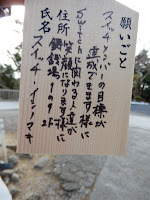 願いごと
スイッチメンバーの目標が
達成できます様に
Switchに関わる人達が
笑顔になります様に
住所
氏名 スイッチ・イシノマキ